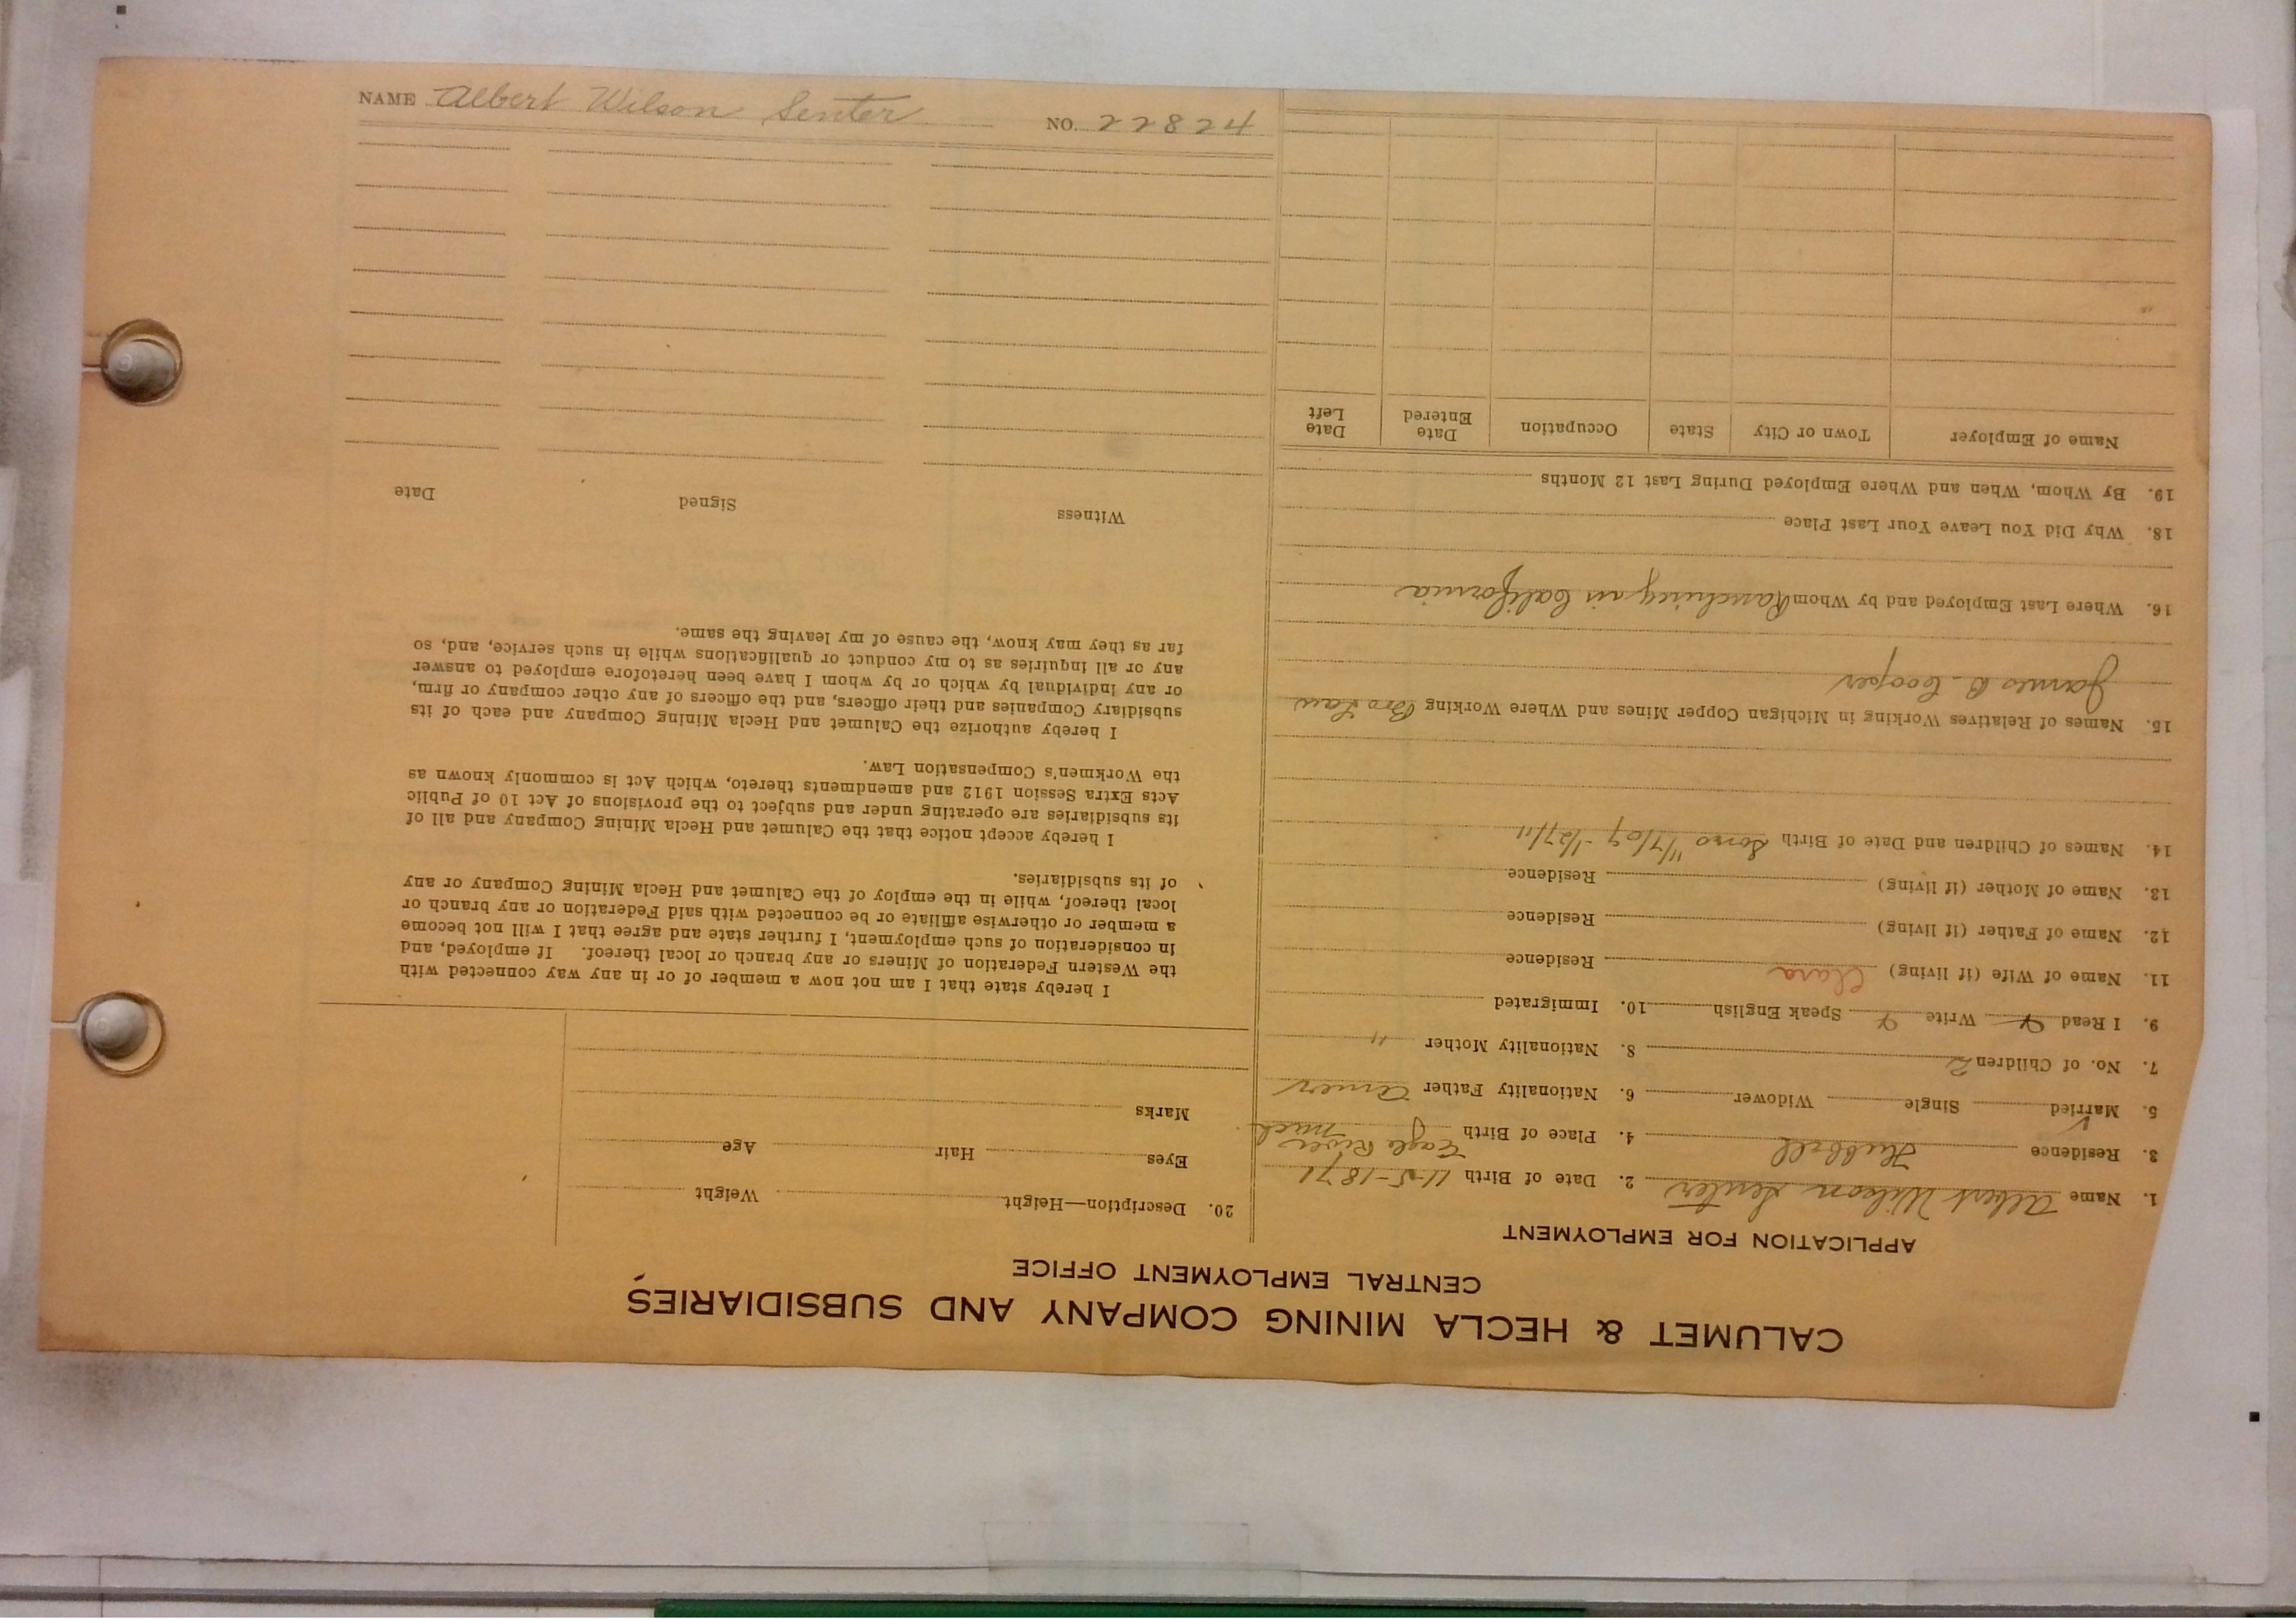 CALUMET & HECLA MINING COMPANY AND SUBSIDIARIES
CENTRAL EMPLOYMENT OFFICE
APPLICATION FOR EMPLOYMENT
1. Name Albert Wilson Senter 2. Date of Birth 11-5-1871
3. Residence Hubbell 4. Place of Birth Eagle River Mich
5. Married Single Widower 6. Nationality Father Amer
7. No. of Children 2 8. Nationality Mother "
9. I Read Y Write Y Speak English 10. Immigrated
11. Name of Wife (if living) Clara Residence
12. Name of Father (if living) Residence
13. Name of Mother (if living) Residence
14. Names of Children and Date of Birth Sons 11/7/09 - 1/27/11
15. Names of Relatives Working in Michigan Copper Mines and Where Working Bro Law
James B. Cooper
16. Where Last Employed and by Whom Ranching in California
18. Why Did You Leave Your Last Place
19. By Whom, When and Where Employed During Last 12 Months
Name of Employer Town or City State Occupation Date Entered Date Left
20. Description—Height Weight
Eyes Hair Age
Marks
I hereby state that I am not now a member of or in any way connected with
the Western Federation of Miners or any branch or local thereof. If employed, and
in consideration of such employment, I further state and agree that I will not become
a member or otherwise affiliate or be connected with said Federation or any branch or
local thereof, while in the employ of the Calumet and Hecla Mining Company or any
of its subsidiaries.
I hereby accept notice that the Calumet and Hecla Mining Company and all of
its subsidiaries are operating under and subject to the provisions of Act 10 of Public
Acts Extra Session 1912 and amendments thereto, which Act is commonly known as
the Workmen's Compensation Law.
I hereby authorize the Calumet and Hecla Mining Company and each of its
subsidiary Companies and their officers, and the officers of any other company or firm,
or any individual by which or by whom I have been heretofore employed to answer
any or all inquiries as to my conduct or qualifications while in such service, and, so
far as they may know, the cause of my leaving the same.
Witness Signed Date
NAME Albert Wilson Senter NO. 22824